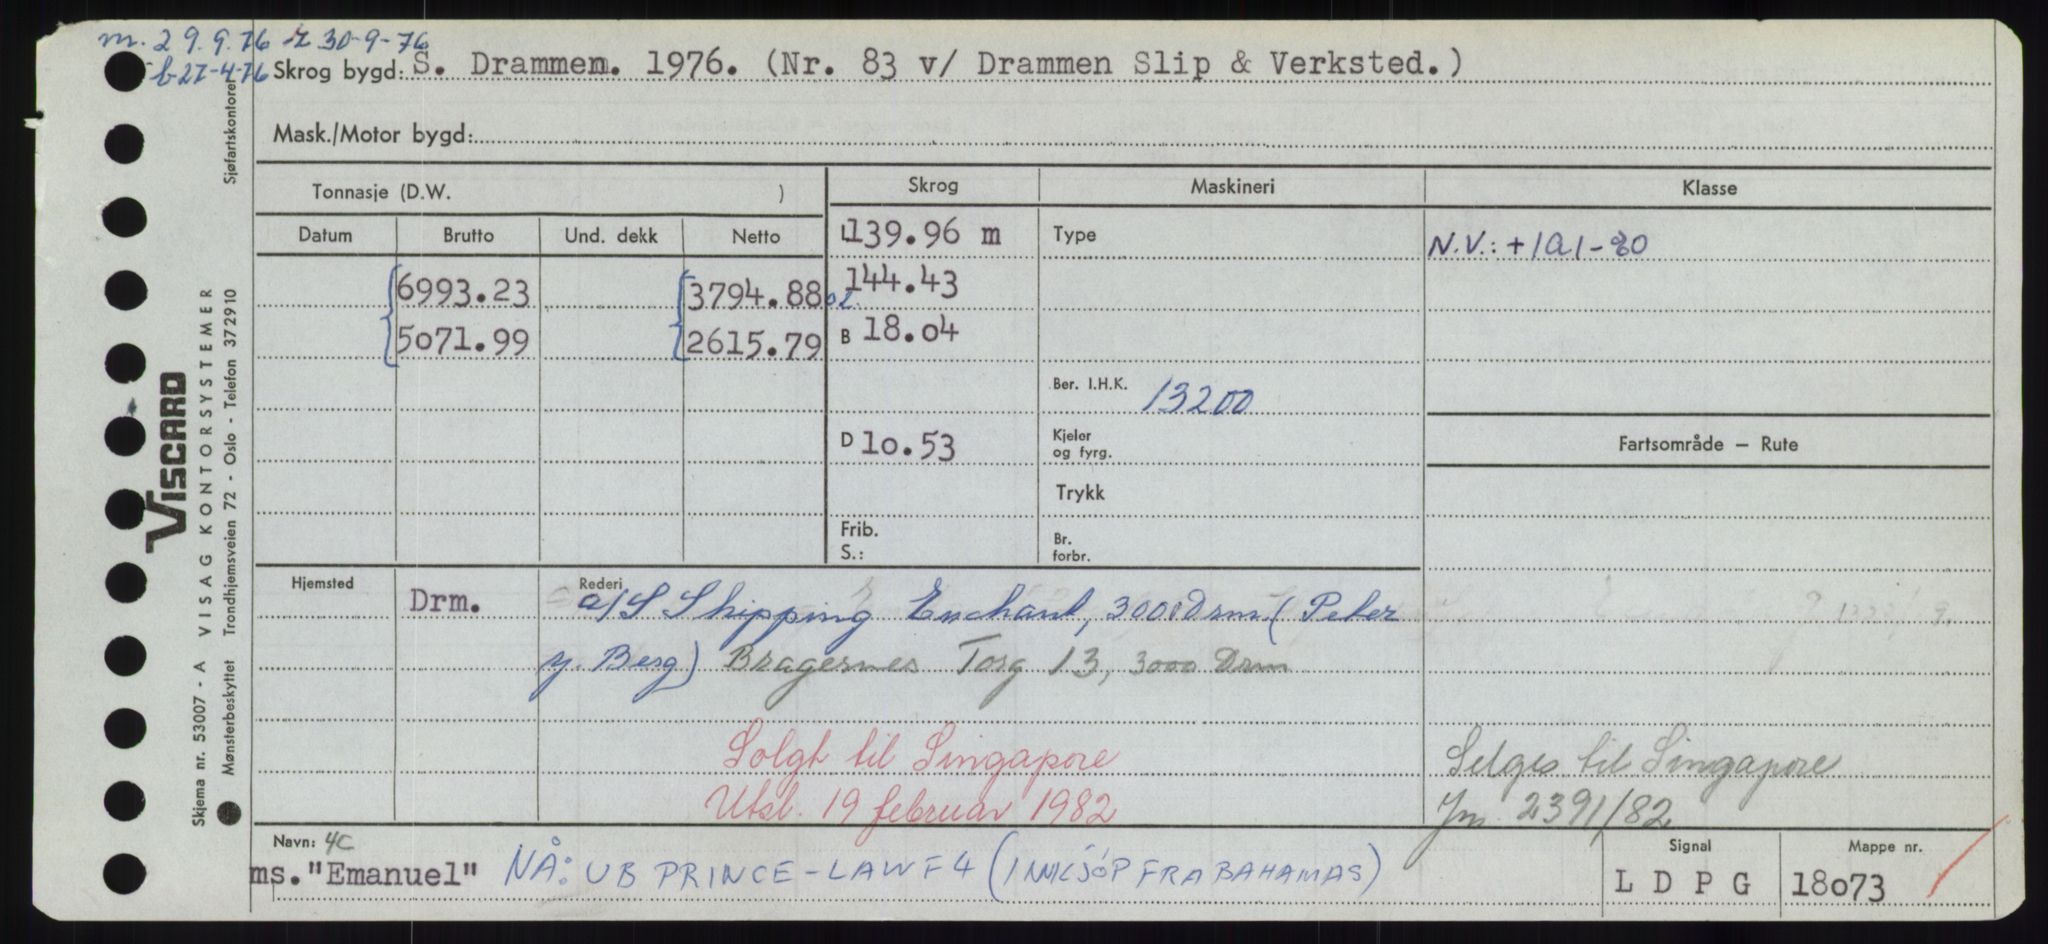 m. 29.9.76 r 30-9-76
b-27-4-76 Skrog bygd: S. Drammen. 1976. (Nr. 83 v/ Drammen Slip & Verksted.)
Mask./Motor bygd:
Tonnasje (D.W. ) Skrog Maskineri Klasse
Datum Brutto Und. dekk Netto L 139.96 m Type N.V.: +1A1-80
6993.23 3794.88 02 144.43
5071.99 2615.79 B 18.04
Ber. I.H.K. 13200
D 10.53 Kjeler og fyrg. Fartsområde — Rute
Trykk
Frib. S.: Br. forbr.
Hjemsted Drm. Rederi a/S Shipping Enchant, 3000 Drm. (Peter
y. Berg) Bragernes Torg 13, 3000 Drm
Solgt til Singapore Selges til Singapore
Utsl. 19 februar 1982 Jnr. 2391/82
Navn: 4C Signal Mappe nr.
ms. "Emanuel" NÅ: UB PRINCE - LAWF4 (INNKJÖP FRA BAHAMAS) L D P G 18073
Skjema nr. 53007 - A VISAG KONTORSYSTEMER
VISCARD
Mønsterbeskyttet Trondhjemsveien 72 - Oslo - Telefon 372910 Sjøfartskontoret